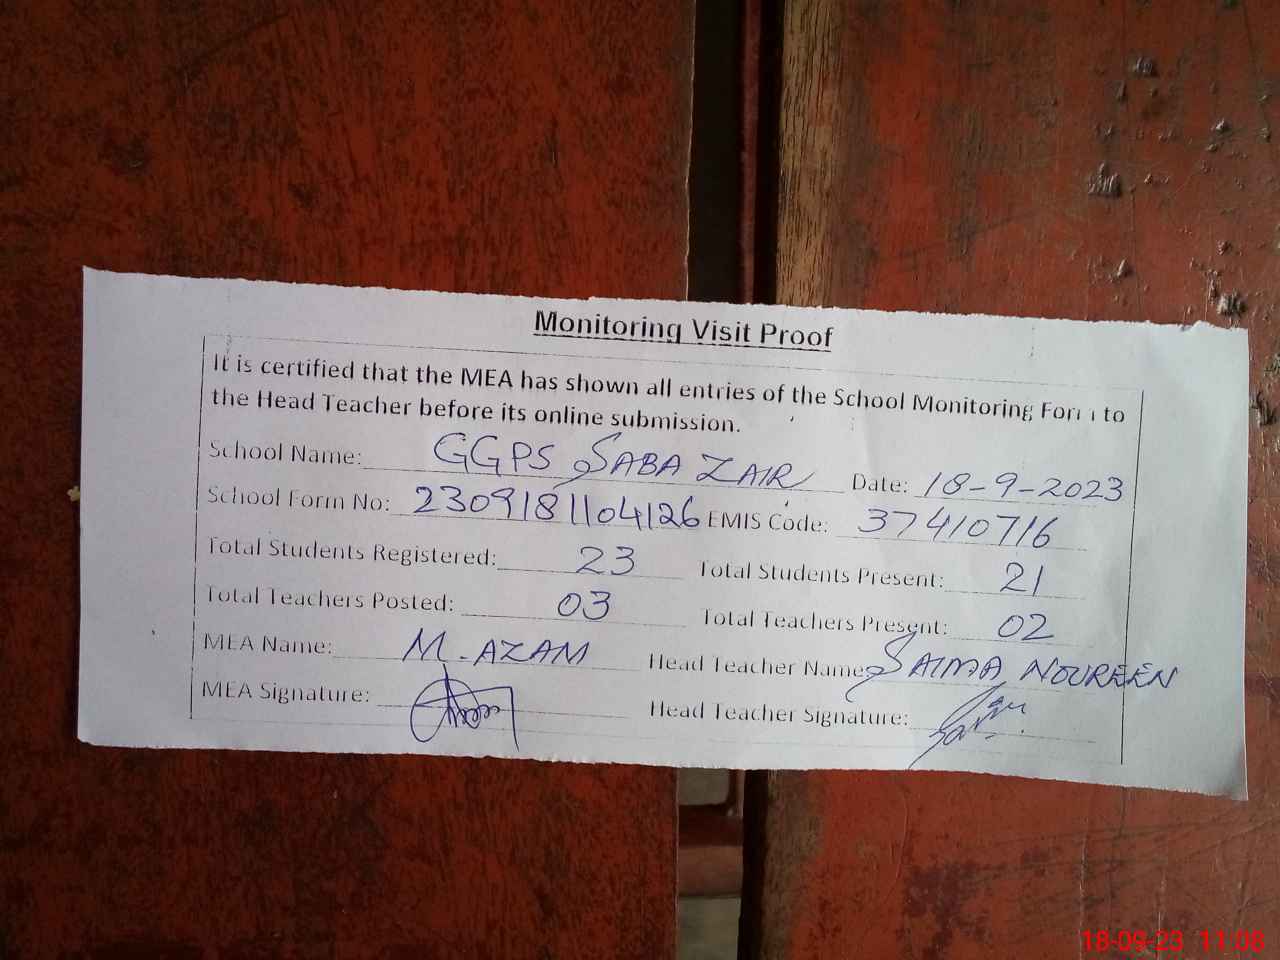 Monitoring Visit Proof
It is certified that the MEA has shown all entries of the School Monitoring Form to
the Head Teacher before its online submission.
School Name: GGPS SABA ZAIR Date: 18-9-2023
School Form No: 2309181104126 EMIS Code: 37410716
Total Students Registered: 23 Total Students Present: 21
Total Teachers Posted: 03 Total Teachers Present: 02
MEA Name: M. AZAM Head Teacher Name SAIMA NOUREEN
MEA Signature: Head Teacher Signature:
18-09-23 11:08